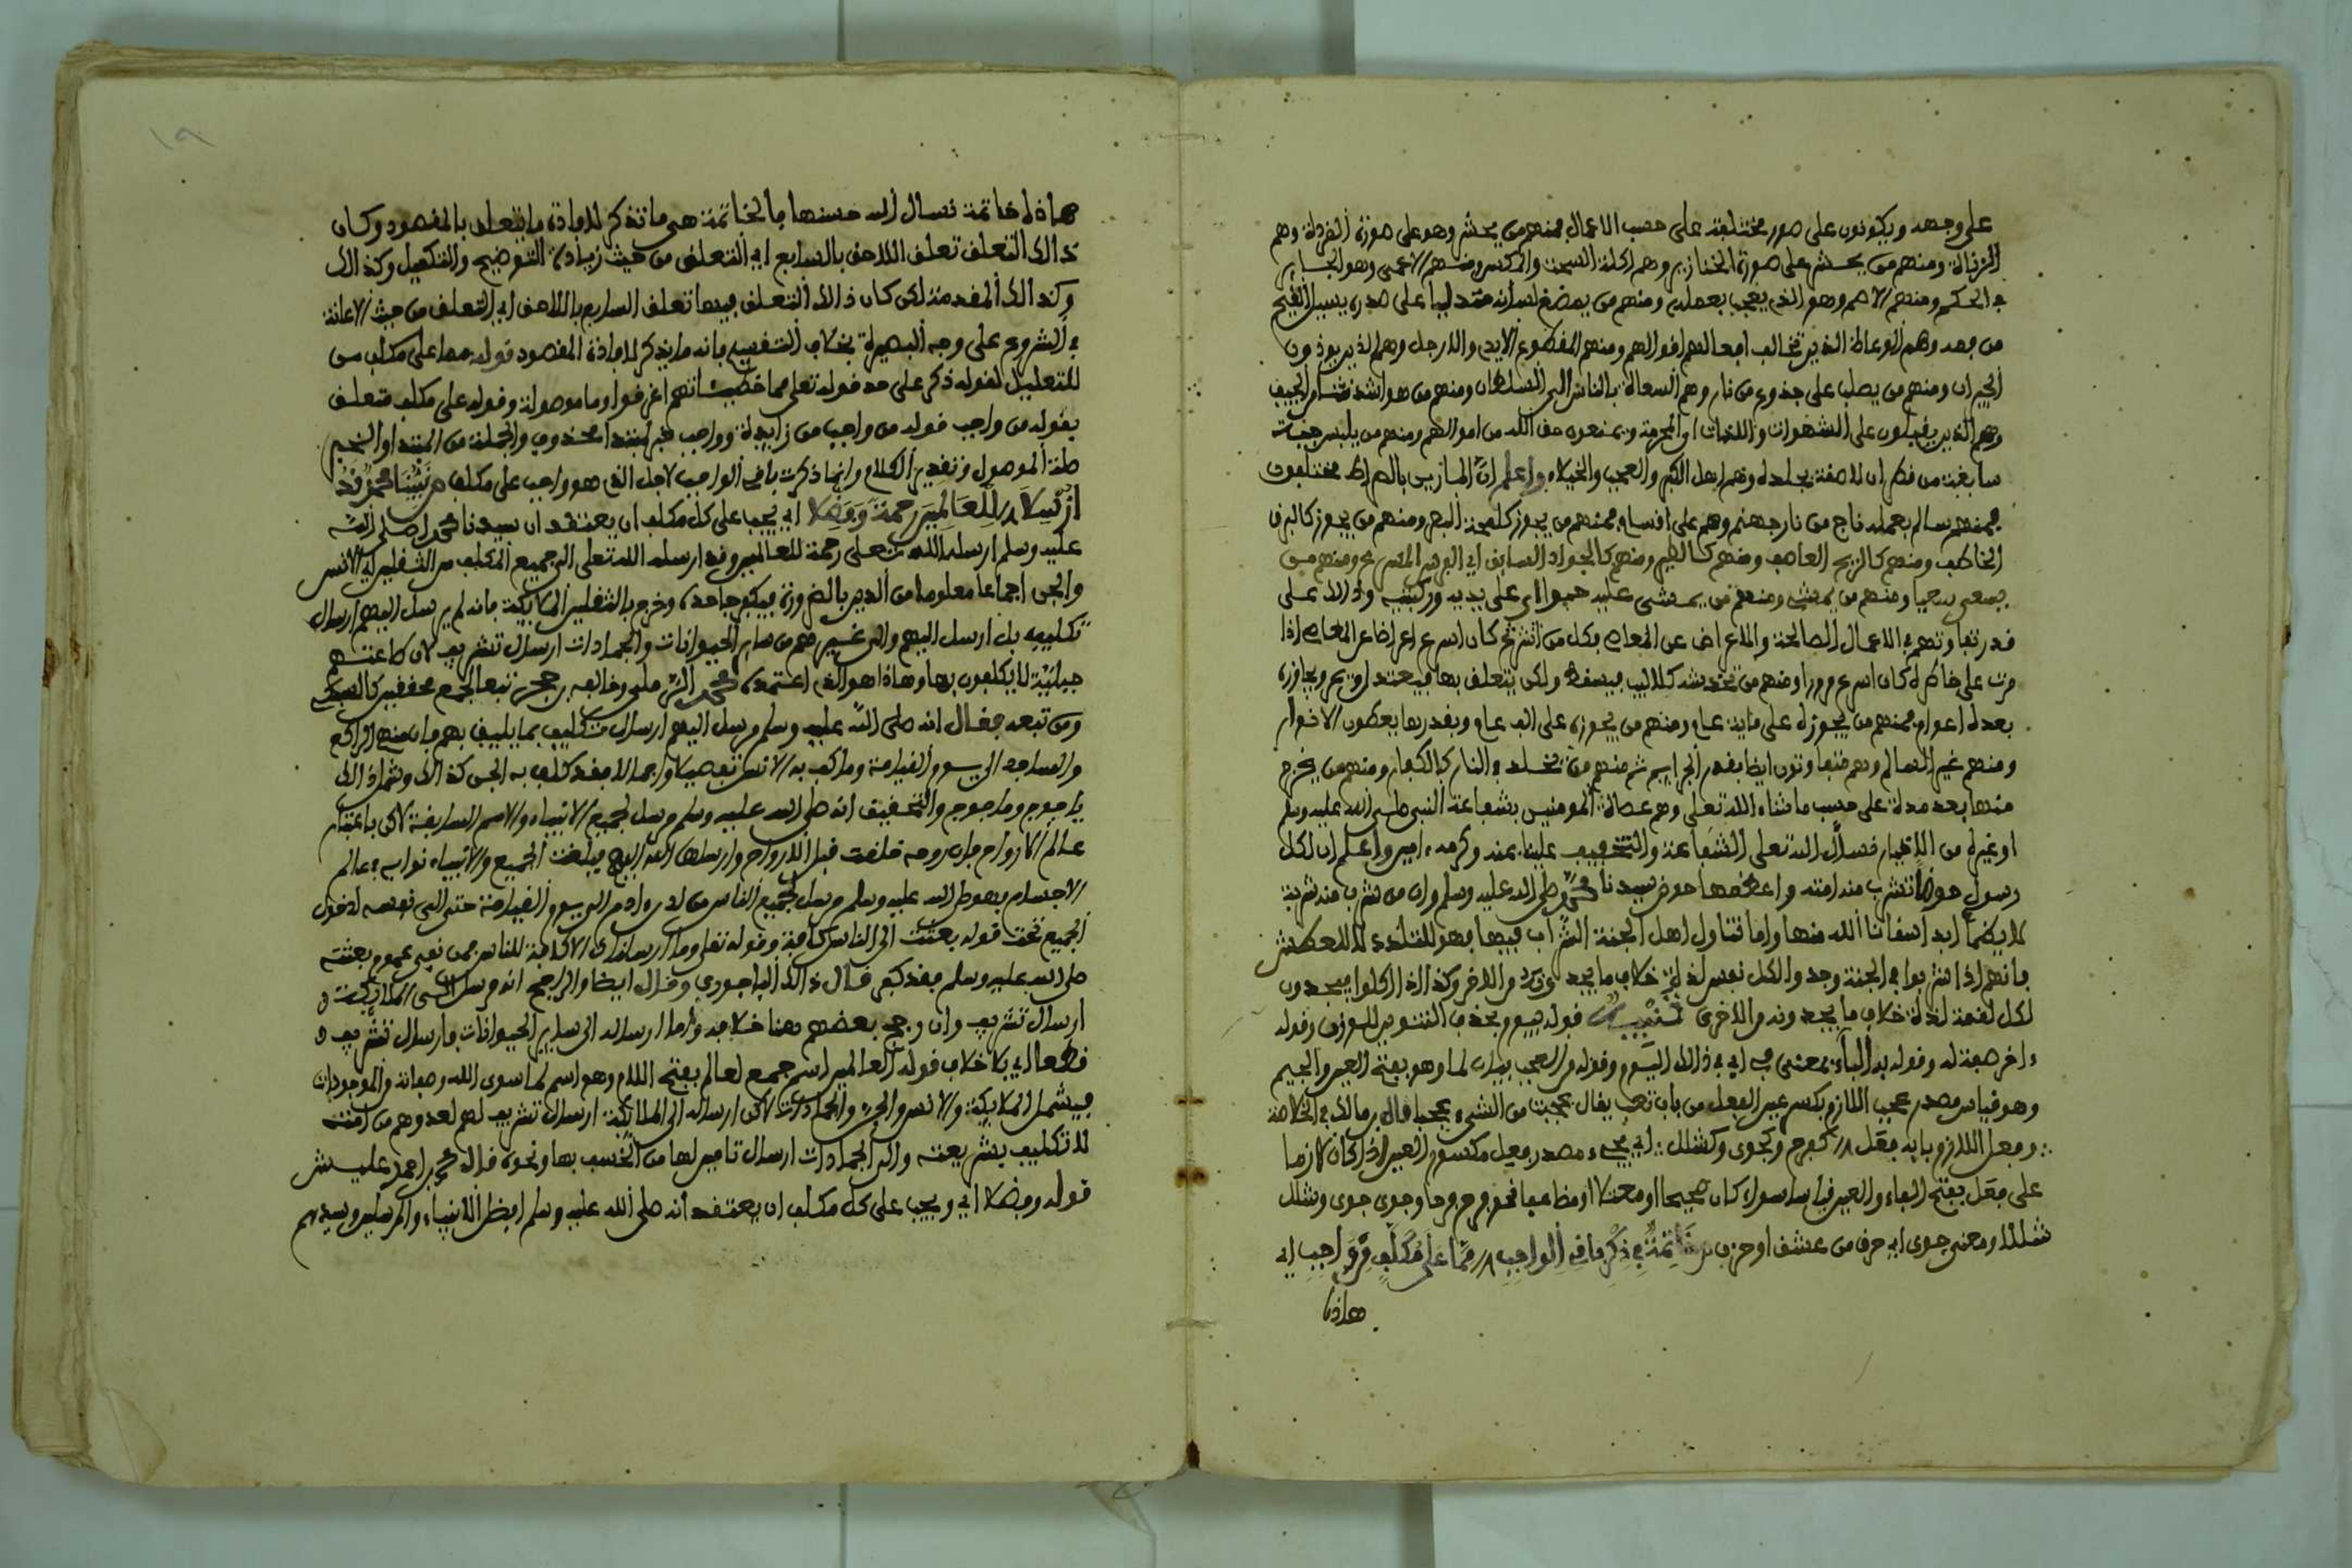 على وجهه ويكونون على صور مختلفة على حسب الاعمال فمنهم من يحشر وهو على صورة القردة وهم
الزناة ومنهم من يحشر على صورة الخنازير وهم اكلة السحت والمكس ومنهم الاعمى وهو الجاير
في الحكم ومنهم الاصم وهو الذي يعجب بعمله ومنهم من يمضغ لسانه متدليا على صدره يسيل القيح
من فمه وهم الوعاظ الذين تخالف افعالهم اقوالهم ومنهم المقطوع الايدي والارجل وهم الذين يوذون
الجيران ومنهم من يصلب على جذوع من نار وهم السعاة بالناس الى السلطان ومنهم من هو اشد نتنا من الجيف
وهم الذين يقبلون على الشهوات واللذات المحرمة ويمنعون حق الله من اموالهم ومنهم من يلبس جبة
سابغة من قطران لاصقة بجلده وهم اهل الكبر والعجب والخيلاء واعلم ان المارين بالصراط مختلفون
فمنهم سالم بعمله ناج من نار جهنم وهم على اقسام فمنهم من يجوز كلمحة البصر ومنهم من يجوز كالبرق
الخاطف ومنهم كالريح العاصف ومنهم كالطير ومنهم كالجواد السابق اي الفرس المسرع ومنهم من
يسعى سعيا ومنهم من يمشي ومنهم من يمشى عليه حبوا اي على يديه وركبتيه وذالك على
قدر تفاوتهم في الاعمال الصالحة والاعراض عن المعاصي فكل من كان اسرع اعراضا عن المعاصي اذا
مرت على خاطره كان اسرع مرورا ومنهم من تخدشه كلاليب فيسقط ولكن يتعلق بها فيعتدل ويمر ويجاوزه
بعد اعوام فمنهم من يجوزه على ماية عام ومنهم من يجوزه على الف عام وبقدرها يعطون الانوار
ومنهم غير السالم وهم متفاوتون ايضا بقدر الجرايم ثم منهم من يخلد في النار كالكفار ومنهم من يخرج
منها بعد مدة على حسب ما شاء الله تعلى وهم عصاة المومنين بشفاعة النبي صلى الله عليه وسلم
او غيره من الاخيار فنسال الله تعلى الشفاعة والتخفيف علينا بمنه وكرمه ءامين واعلم ان لكل
رسول حوضا تشرب منه امته واعظمها حوض سيدنا محمد صلى الله عليه وسلم وان من شرب منه شربة
لا يظما ابدا سقانا الله منها واما تناول اهل الجنة الشراب فيها فهو للتلذذ لا للعطش
فانهم اذا شربوا في الجنة وجدوا لكل نفس لذة خلاف ما يجدونه من الاخر وكذالك اذا اكلوا فيجدون
لكل لقمة لذة خلاف ما يجدونه من الاخرى تنبيه قوله بحذف التنوين للوزن وقوله
ءاخر صفة له وقوله به الباء بمعنى في اي في ذالك اليوم وقوله من العجب بيان لما وهو بفتح العين والجيم
وهو قياس مصدر عجب اللازم بكسر عين الفعل من باب تعب يقال عجبت من الشيء عجبا قال بن مالك في الخلاصة
وفعل اللازم بابه فعل كفرح وكجوى وكشلل اي يجيء مصدر فعل مكسور العين اذا كان لازما
على فعل بفتح الفاء والعين قياسا سواء كان صحيحا او معتلا او مضاعفا نحو فرح فرحا وجوي جوى وشلل
شللا ومعنى جوى اي حرق من عشق او حزن خاتمة في ذكر باقي الواجب مما على مكلف من واجب اي
هاذه
هاذه خاتمة نسال الله حسنها فالخاتمة هي ما تذكر لافادة ما يتعلق بالمقصود وكان
ذالك التعلق تعلق اللاحق بالسابق اي التعلق من حيث زيادة التوضيح والتكميل وكذالك
وكذالك المقدمة لكن كان ذالك التعلق فيها تعلق السابق باللاحق اي التعلق من حيث الاعانة
في الشروع على وجه البصيرة بخلاف التقسيم فانه ما يذكر لافادة المقصود قوله مما على مكلف من
للتعليل لقوله ذكر على حد قوله تعلى مما خطيئاتهم اغرقوا وما موصولة وقوله على مكلف متعلق
بقوله من واجب قوله من واجب من زايدة وواجب خبر لمبتدا محذوف والجملة من المبتدا والخبر
صلة الموصول وتقدير الكلام وانما ذكرت باقي الواجب لاجل الذي هو واجب على مكلف نبينا محمد قد
ارسلا للعالمين رحمة وفضلا اي يجب على كل مكلف ان يعتقد ان سيدنا محمدا صلى الله
عليه وسلم ارسله الله تعلى رحمة للعالمين وقد ارسله الله تعلى الى جميع المكلف من الثقلين اي الانس
والجن اجماعا معلوما من الدين بالضرورة فيكفر جاحده وخرج بالثقلين الملايكة فانه لم يرسل اليهم ارسال
تكليف بل ارسل اليهم والى غيرهم من ساير الحيوانات والجمادات ارسال تشريف لان طاعتهم
جبلية لا يكلفون بها وهاذا هو الذي اعتمده محمد الرملي وخالفه بن حجر تبعا لجمع محققين كالسبكي
ومن تبعه فقال انه صلى الله عليه وسلم مرسل اليهم ارسال تكليف بما يليق بهم فان منهم الراكع
والساجد الى يوم القيامة وما كلف به الانس تفصيلا واجمالا فقد كلف به الجن كذالك وشمل ذالك
ياجوج وماجوج والتحقيق انه صلى الله عليه وسلم مرسل لجميع الانبياء والامم السابقة لاكن باعتبار
عالم الارواح فان روحه خلقت قبل الارواح وارسلها الله اليهم فبلغت الجميع والانبياء نوابه في عالم
الاجسام فهو صلى الله عليه وسلم مرسل لجميع الناس من لدن ءادم الى يوم القيامة حتى الى نفسه لدخول
الجميع تحت قوله بعثت الى الناس كافة وقوله تعلى وما ارسلناك الا كافة للناس فمن نفى عموم بعثته
صلى الله عليه وسلم فقد كفر قال ذالك الباجوري وقال ايضا والراجح انه مرسل الى الملايكة
ارسال تشريف وان رجح بعضهم هنا خلافه واما ارساله الى ساير الحيوانات فارسال تشريف
قطعا اي بلا خلاف قوله العالمين اسم جمع لعالم بفتح اللام وهو اسم لما سوى الله وصفاته والموجودات
فيشمل الملايكة والانس والجن والجمادات لاكن ارساله الى الملايكة ارسال تشريف لهم لعدهم من امته
لا تكليف بشريعته والى الجمادات ارسال تامين لها من الخسف بها ونحوه قال محمد بن احمد عليش
قوله وفضلا اي ويجب على كل مكلف ان يعتقد انه صلى الله عليه وسلم افضل الانبياء والمرسلين وسيدهم